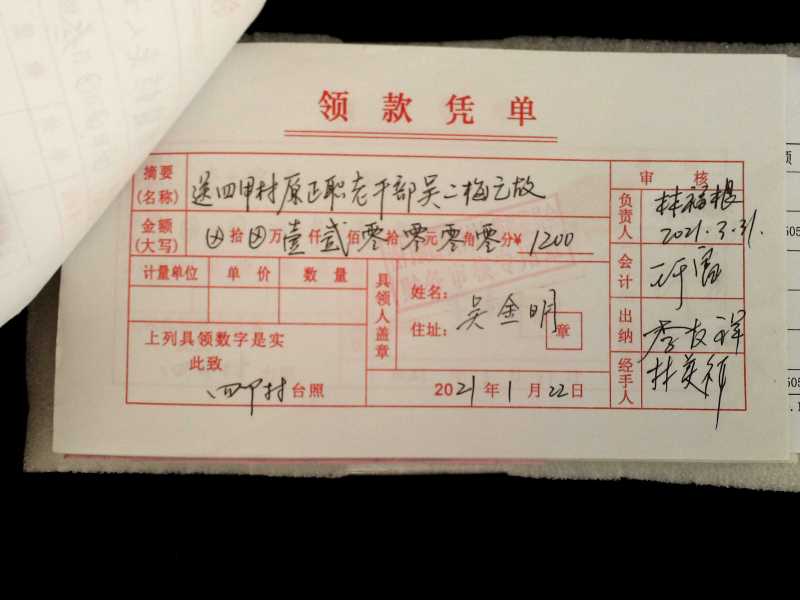 领款凭单
摘要(名称) 送四甲村原正职老干部吴二梅亡故
金额(大写) ⊗拾⊗万壹仟贰佰零拾零元零角零分¥ 1200
计量单位 单价 数量
上列具领数字是实
此致
四甲村台照
具领人盖章
姓名: 吴金明
住址:
章
2021年1月22日
审核
负责人 林福根
2021.3.31.
会计
出纳 李友祥
经手人